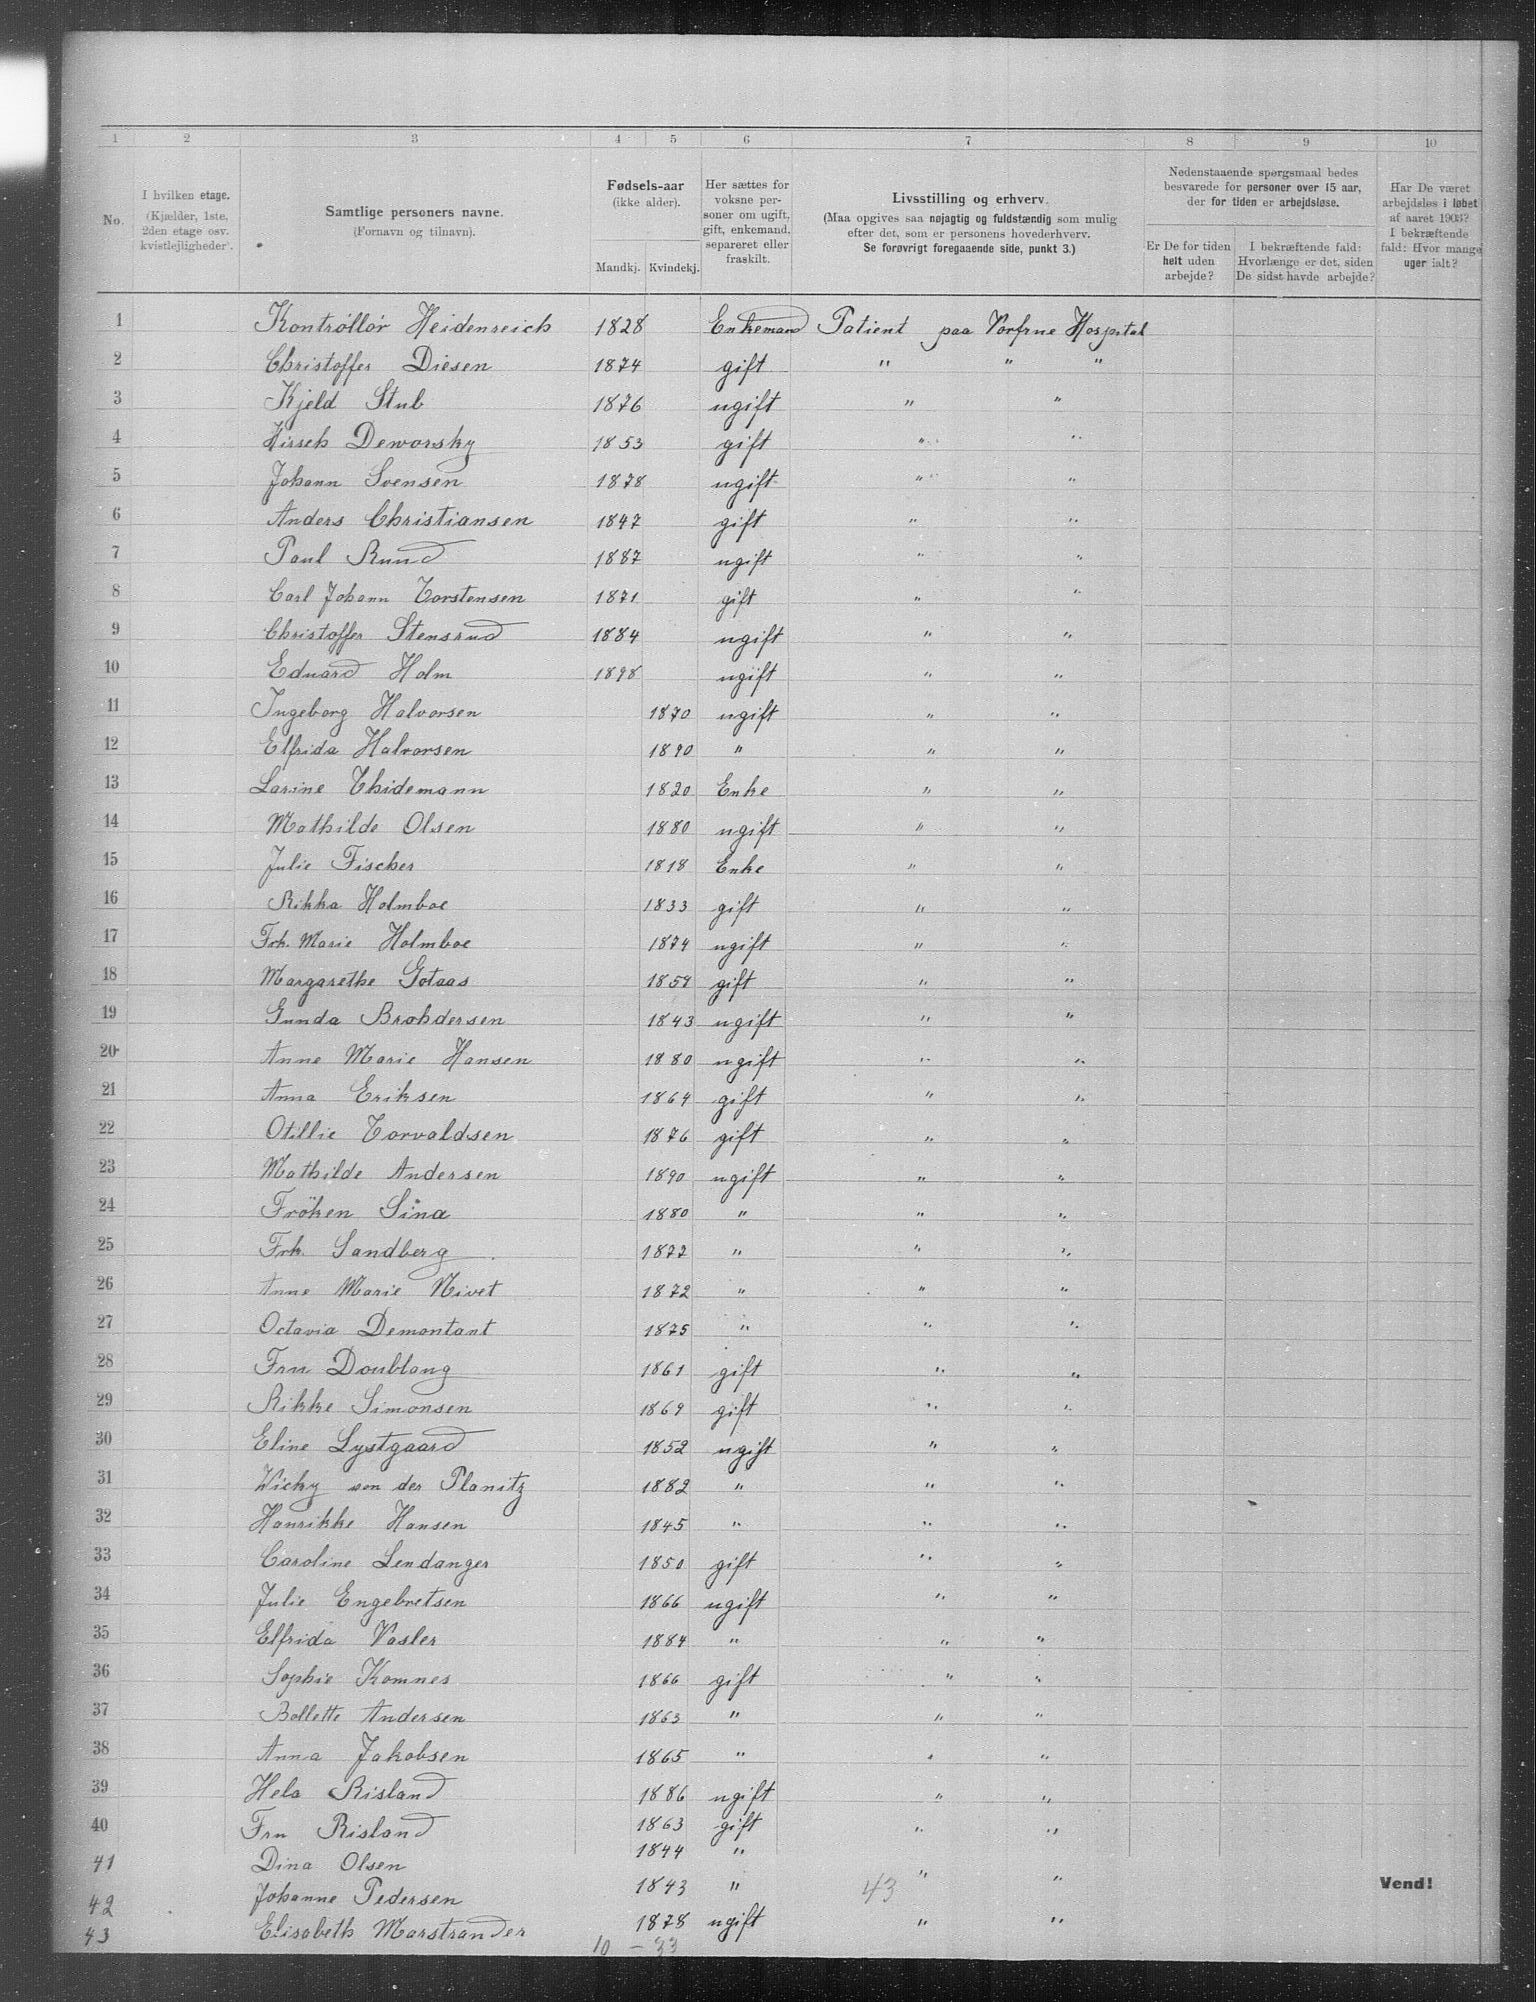 1 2 3 4 5 6 7 8 9 10
No.
I hvilken etage. (Kjælder, 1ste, 2den etage osv. kvistlejligheder).
Samtlige personers navne. (Fornavn og tilnavn).
Fødsels-aar (ikke alder). Mandkj. Kvindekj.
Her sættes for voksne personer om ugift, gift, enkemand, separeret eller fraskilt.
Livsstilling og erhverv. (Maa opgives saa nøjagtig og fuldstændig som mulig efter det, som er personens hovederhverv. Se forøvrigt foregaaende side, punkt 3.)
Nedenstaaende spørgsmaal bedes besvarede for personer over 15 aar, der for tiden er arbejdsløse.
Er De for tiden helt uden arbejde?
I bekræftende fald: Hvorlænge er det, siden De sidst havde arbejde?
Har De været arbejdsløs i løbet af aaret 1903? I bekræftende fald: Hvor mange uger ialt?
1 Kontrollör Heidenreich 1828 Enkemand Patient paa Vorfrue Hospital
2 Christoffer Diesen 1874 gift " " "
3 Kjeld Stub 1876 ugift " "
4 Hirsch Deworsky 1853 gift " "
5 Johann Svensen 1878 ugift " "
6 Anders Christiansen 1847 gift " "
7 Paul Ruud 1887 ugift " "
8 Carl Johann Torstensen 1871 gift " "
9 Christoffer Stensrud 1884 ugift " "
10 Eduard Holm 1898 ugift " "
11 Ingeborg Halvorsen 1870 ugift " "
12 Elfrida Halvorsen 1890 " " "
13 Larine Thidemann 1820 Enke " "
14 Mathilde Olsen 1880 ugift " "
15 Julie Fischer 1818 Enke " "
16 Rikka Holmboe 1833 gift " "
17 Frk. Marie Holmboe 1874 ugift " "
18 Margarethe Gotaas 1859 gift " "
19 Gunda Brohdersen 1843 ugift " "
20 Anne Marie Hansen 1880 ugift " "
21 Anna Eriksen 1864 gift " "
22 Otillie Torvaldsen 1876 gift " "
23 Mathilde Andersen 1890 ugift " "
24 Fröken Sina 1880 " " "
25 Frk. Sandberg 1872 " " "
26 Anne Marie Nivet 1872 " " "
27 Octavia Demontant 1875 " " "
28 Fru Doubloug 1861 gift " "
29 Rikke Simonsen 1869 gift " "
30 Eline Lystgaard 1852 ugift " "
31 Vicky von der Planitz 1882 " " "
32 Hanrikke Hansen 1845 " " "
33 Caroline Lendanger 1850 gift " "
34 Julie Engebretsen 1866 ugift " "
35 Elfrida Vasler 1884 " " "
36 Sophie Komnes 1866 gift " "
37 Bollette Andersen 1863 " " "
38 Anna Jakobsen 1865 " " "
39 Hela Risland 1886 ugift " "
40 Fru Risland 1863 gift " "
41 Dina Olsen 1844 " " "
Vend!
42 Johanne Pedersen 1843 " 43
43 Elisabeth Marstrander 1878 ugift " "
10 - 33